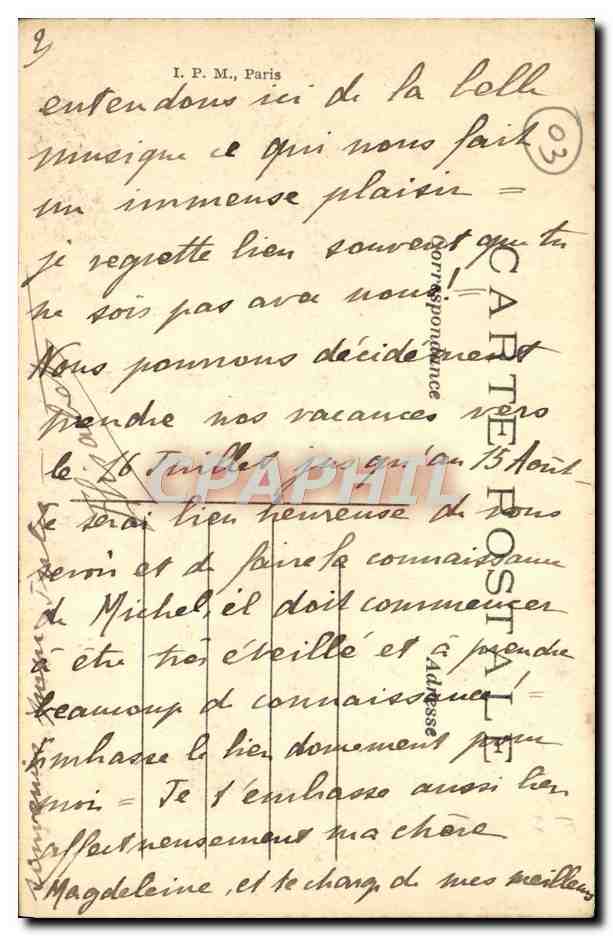 2)
I. P. M., Paris
03
entendons ici de la belle
musique ce qui nous fait
un immense plaisir =
je regrette bien souvent que tu
ne sois pas avec nous! =
Nous pourrons décidément
prendre nos vacances vers
le 16 Juillet jusqu'au 15 Août
Je serai bien heureuse de vous
revoir et de faire la connaissance
de Michel, il doit commencer
à être très éveillé et à prendre
beaucoup de connaissance! =
Embrasse le bien doucement pour
moi = Je t'embrasse aussi bien
affectueusement ma chère
Magdeleine, et te charge de mes meilleurs
souvenirs
CARTE POSTALE
Correspondance
Adresse
CPAPHIL